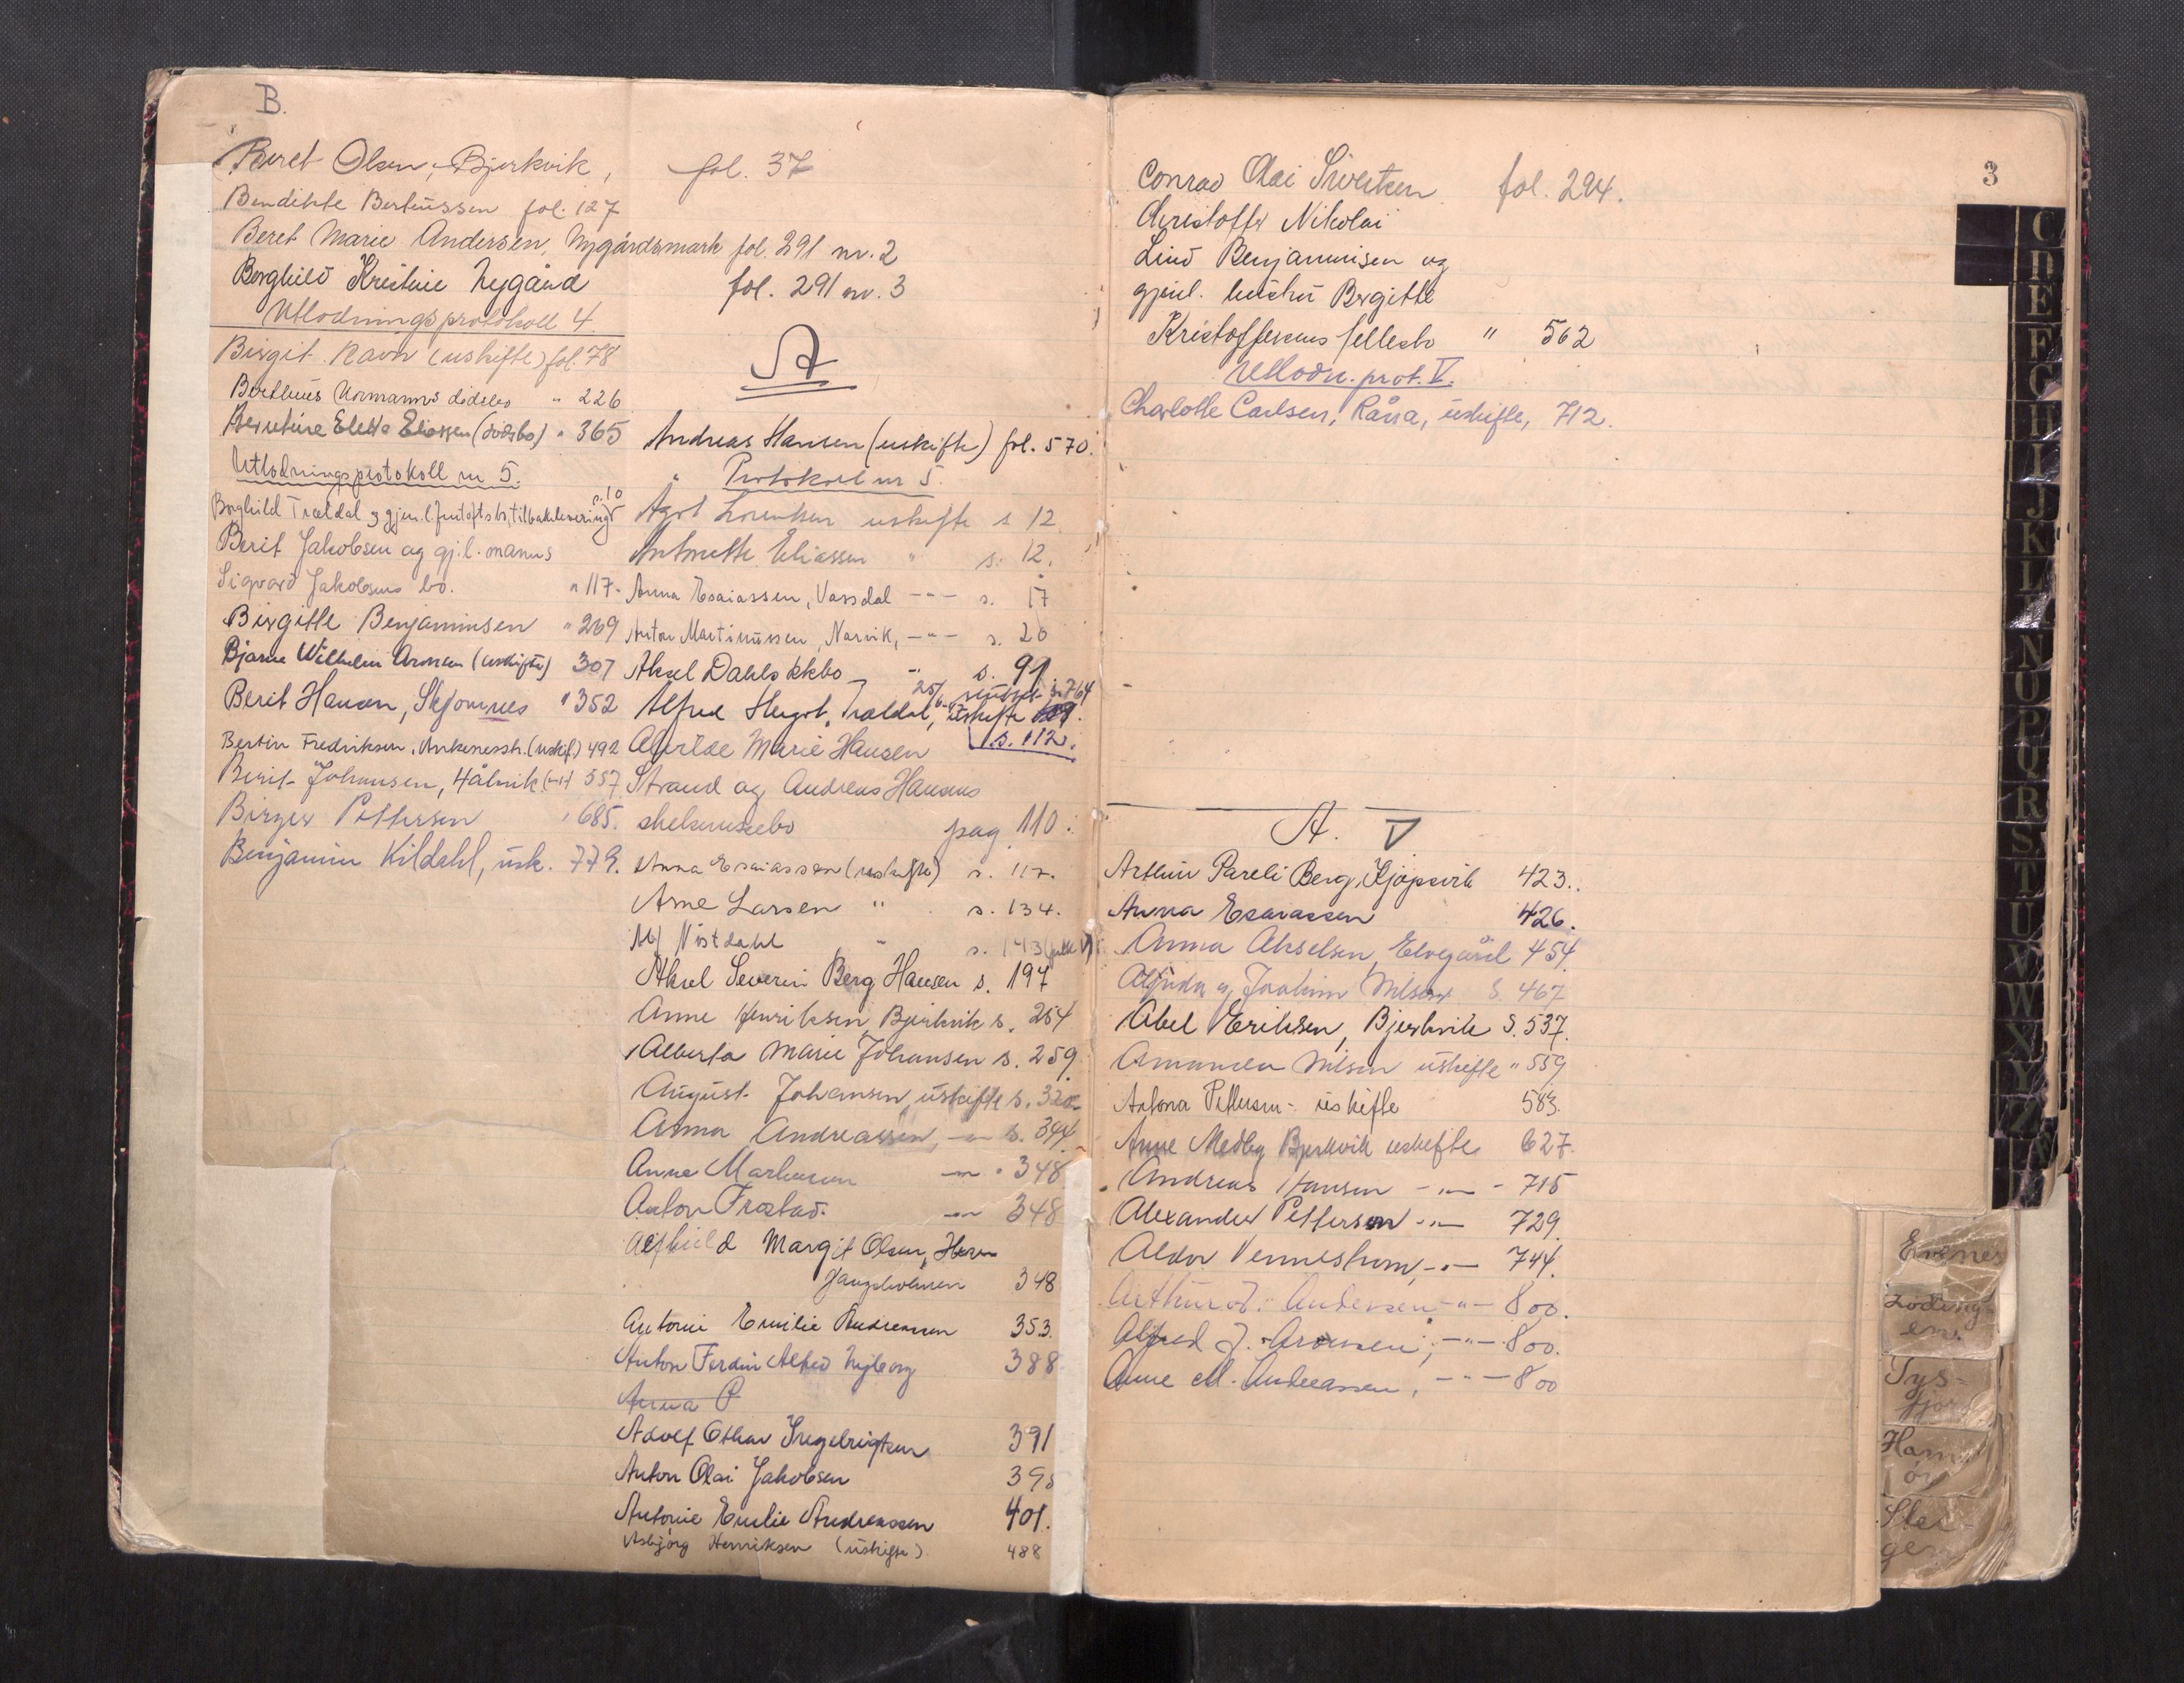 B.
Beret Olsen, Bjerkvik, fol. 37
Bendikte Berteussen fol. 127
Beret Marie Andersen, Nygårdsmark fol. 291 nr. 2
Borghild Kristine Nygård fol. 291 nr. 3
Utlodningsprotokoll 4.
Birgit Ravn (uskifte) fol. 78
Bertheus Normanns dødsbo " 226
Eliassen (dødsbo) " 365
Utlodningsprotokoll nr 5.
Borghild Trældal og gjen.l. tilbakelevering s. 10
Berit Jakobsen og gj.l. manns
Sigvard Jakobsens bo. " 117.
Birgitte Benjaminsen " 269
Bjarne Wilhelm Aronsen (uskifte) 307
Berit Hansen, Skjomnes " 352
Bertin Fredriksen, Ankenesstr. (uskif.) 492
Berit Johansen, Håkvik (-"-) 557
Birger Pettersen " 685.
Benjamin Kildahl, usk. 779.
A
Andreas Hansen (uskifte) fol. 570.
Protokoll nr 5.
Agot Lorentsen uskifte s. 12.
Antonette Eliassen " s. 12.
Anna Esaiassen, Vassdal -"- s. 17
Anton Martinussen, Narvik, -"- s. 26
Aksel Dahls " s. 91
s. 764
Alfred Trældal, uskifte
s. 112.
Marie Hansen
Strand og Andreas Hansens
pag 110.
Anna Esaiassen (uskifte) s. 117.
Arne Larsen " s. 134.
Alf Nistdahl " s. 143
Aksel Severin Berg Hansen s. 197
Anne Henriksen, Bjerkvik s. 254
Alberta Marie Johansen s. 259.
August Johansen, uskifte s. 320
Anna Andreassen, -"- s. 344
Anna -"- " 348
Anton Frostad. -"- 348
Alfhild Margit Olsen, Herr-
jangsholmen 348
Antonie Emilie Andreassen 353.
Anton Ferdin Alfred Nyborg 388
Anna P
Adolf Othar 391
Anton Olai Jakobsen 395
Antonie Emilie Andreassen 401.
Asbjørg Henriksen (uskifte). 488
3
Conrad Olai Sivertsen fol. 294.
Christoffer Nikolai
Lind Benjaminsen og
gjenl. hustru Bergitte
Kristoffersens fellesbo " 562
Utlodn. prot. V.
Charlotte Carlsen, Råna, uskifte, 712.
A. V
Arthur Pareli Berg, Kjøpsvik 423.
Anna Esaiassen 426.
Anna Akselsen, Elvegård 454
Joakim Nilsen S. 467
Abel Eriksen, Bjerkvik S. 537.
Amanda Nilsen uskifte " 559
Antona Pettersen - uskifte 583.
Anne Medby Bjerkvik uskifte 627.
Andreas Hansen -"- 715
Alexander Pettersen -"- 729.
Aldor Vennestrøm, -"- 744.
Arthur Andersen -"- 800.
Alfred J. Aronsen, -"- 800.
Anne M. Andreassen, -"- 800
C
D
E
F
G
H
I
J
K
L
N
O
P
Q
R
S
T
U
V
W
X
Y
Z
Evenes
Løding-
en.
Tys-
fjord
Ham-
ør
Stei-
gen